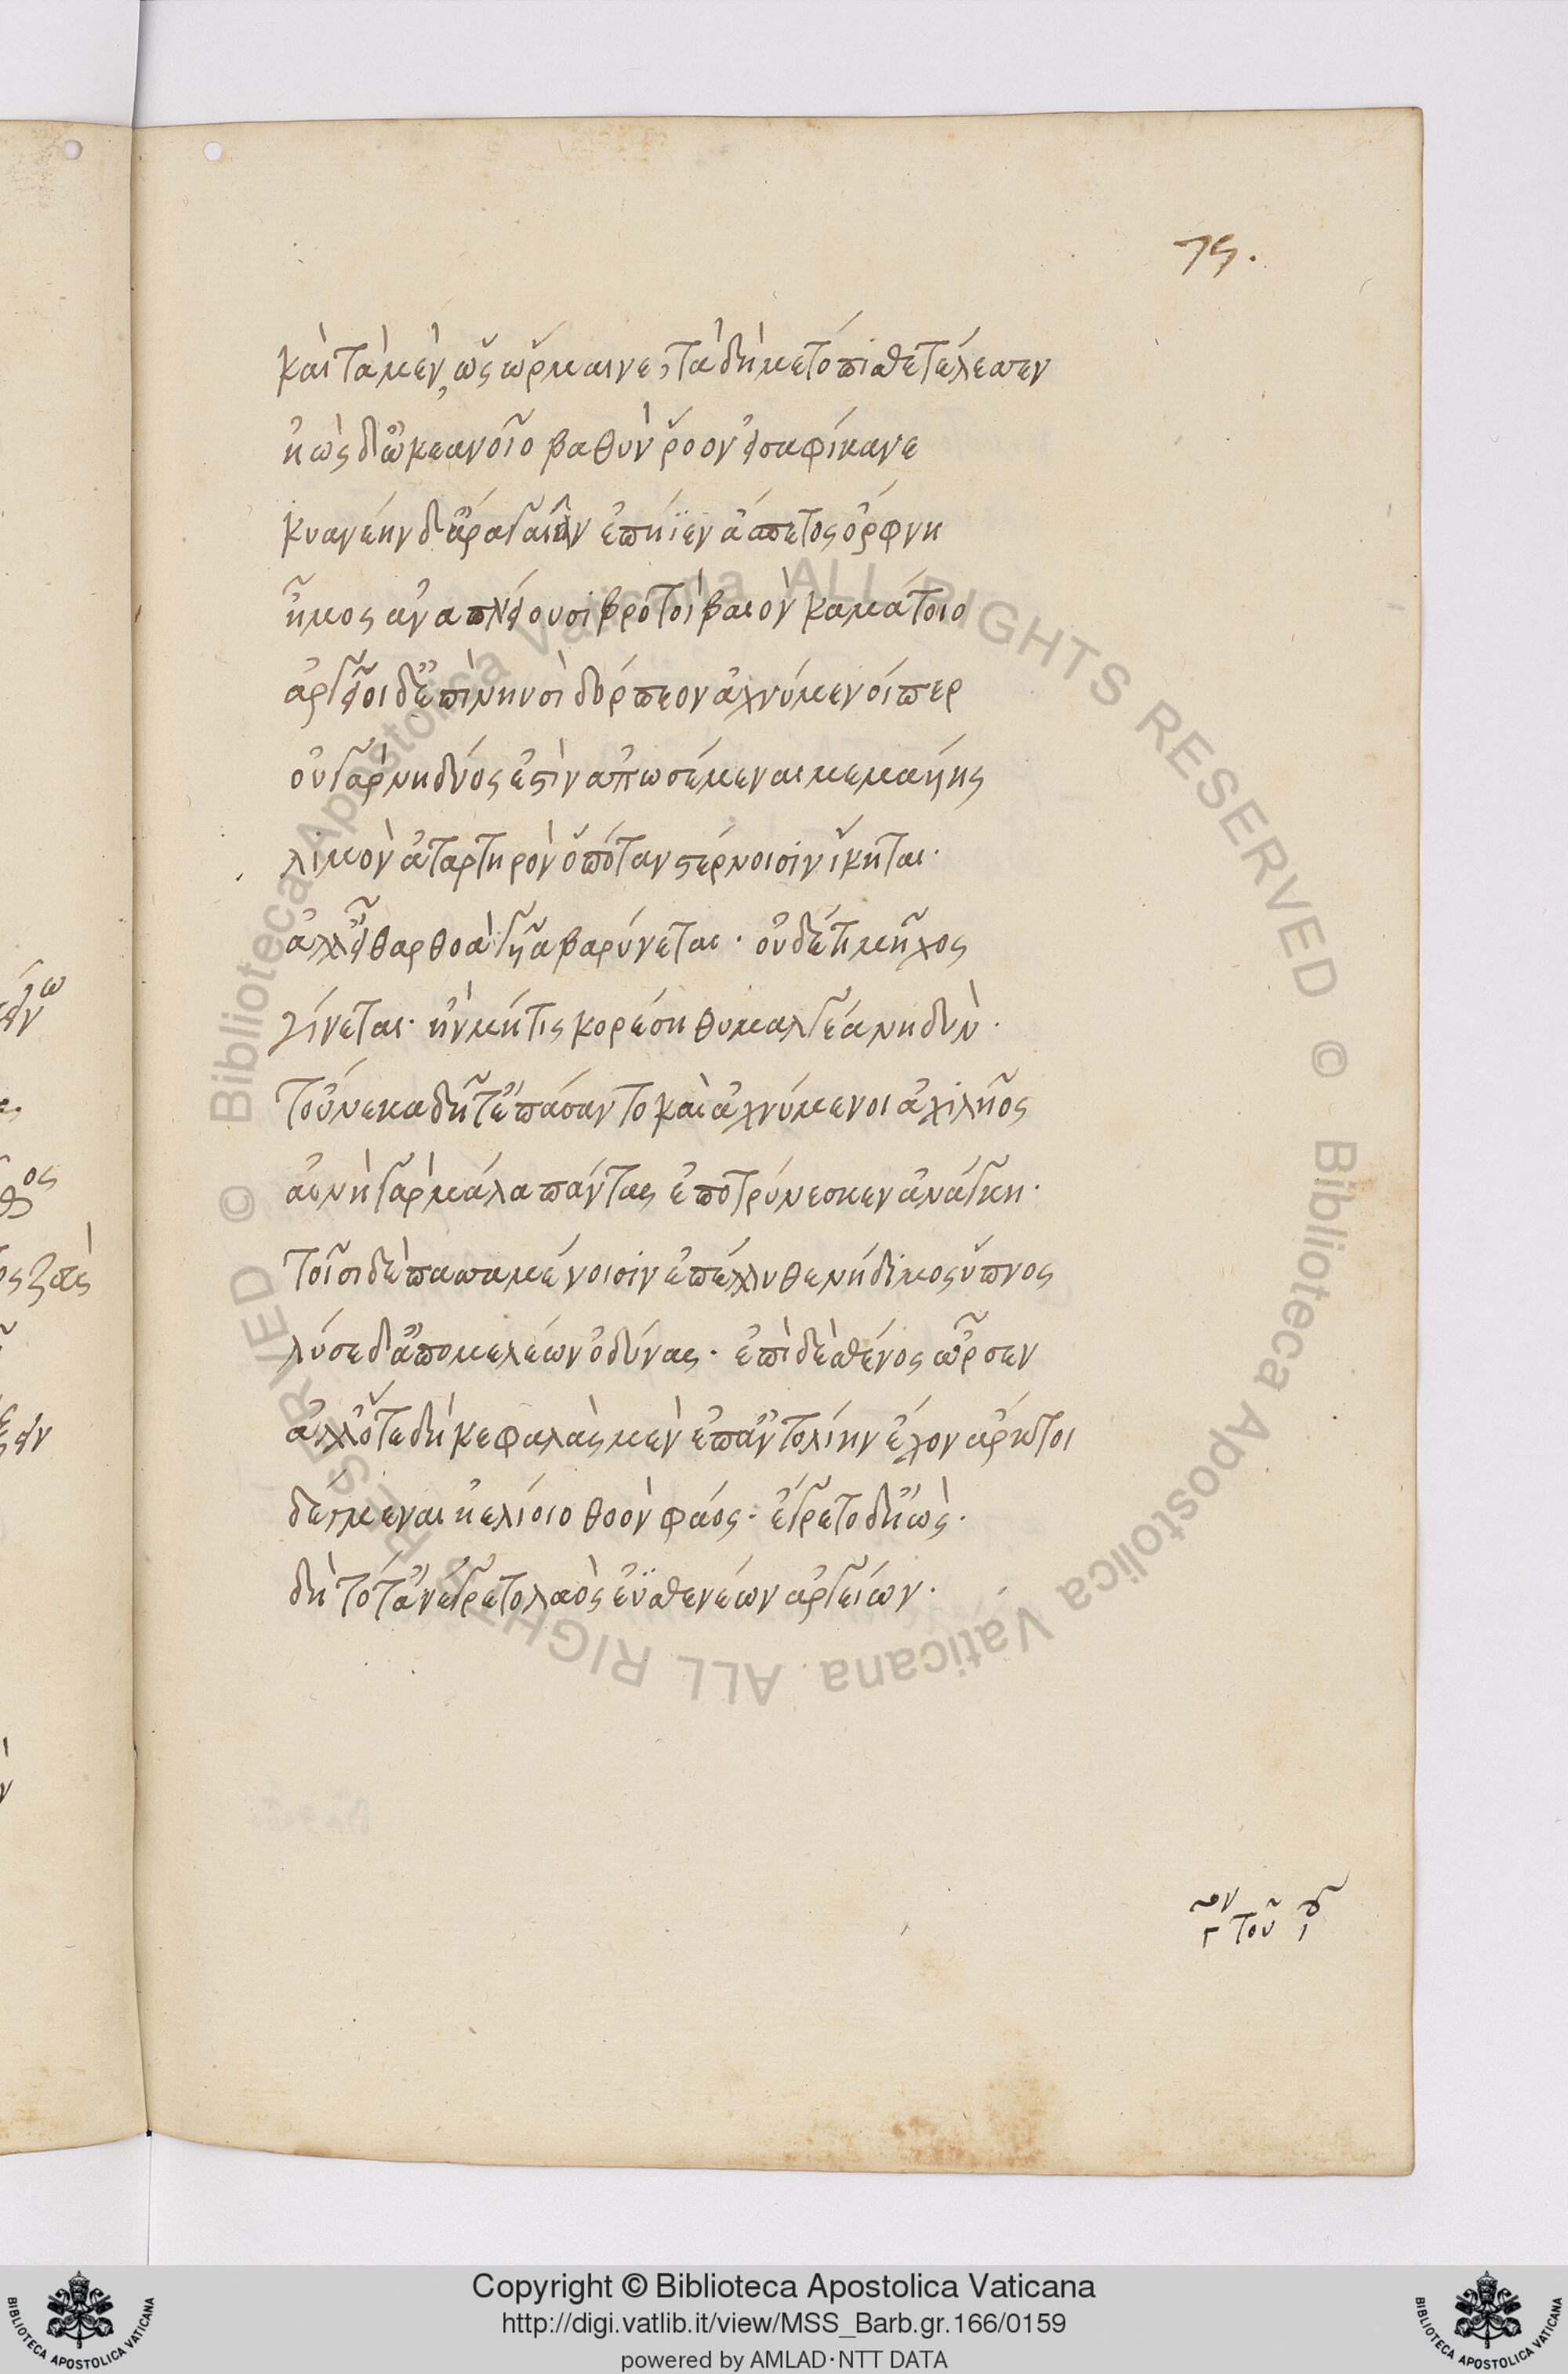 75.
καὶ τὰ μὲν, ὣς ὥρμαινε, τὰ δὴ μετόπισθε τέλεσσεν
ἠὼς δ' ὠκεανοῖο βαθὺν ῥόον εἰσαφίκανε
κυανέην δ' ἄρα γαῖαν ἐπήϊεν ἄσπετος ὄρφνη
ἦμος ἀναπνείουσι βροτοὶ βαιὸν καμάτοιο
ἀργεῖοι δ' ἐπὶ νηυσὶ δόρπεον ἀχνύμενοί περ
οὐ γὰρ νηδύος ἐστὶν ἀπωσέμεναι μεμαύης
λιμὸν ἀταρτηρὸν ὁπόταν στέρνοισιν ἵκηται·
ἀλλ' εἶθαρ θοὰ γῦα βαρύνεται· οὐδέ τι μῆχος
γίνεται· ἢν μή τις κορέση θυμαλγέα νηδὺν·
τοὔνεκα δῆτ' ἐπάσαντο καὶ ἀχνύμενοι ἀχιλῆος
αἰνὴ γὰρ μάλα πάντας ἐποτρύνεσκεν ἀνάγκη·
τοῖσι δὲ πασσαμένοισιν ἐπέλυθε νήδιμος ὕπνος
λύσε δ' ἄπο μελέων ὀδύνας· ἐπὶ δὲ σθένος ὦρσεν
ἀλλ' ὅτε δὴ κεφαλὰς μὲν ἐπ' ἀντολίην ἔχον ἄρκτοι
δέγμεναι ἠελίοιο θοὸν φάος· ἔγρετο δ' ἠὼς·
δὴ τότ' ἀνέγρετο λαὸς ἐϋσθενέων ἀργείων·